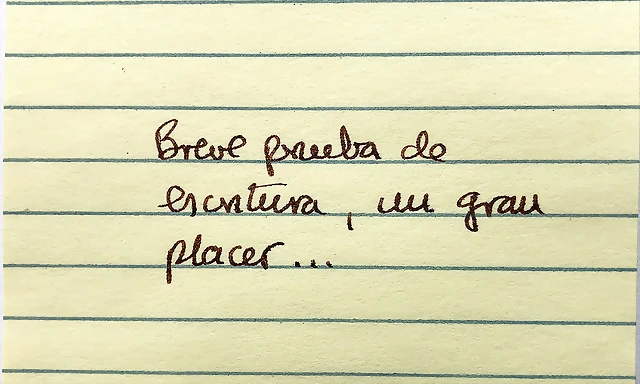 Breve prueba de
escritura, un gran
placer...